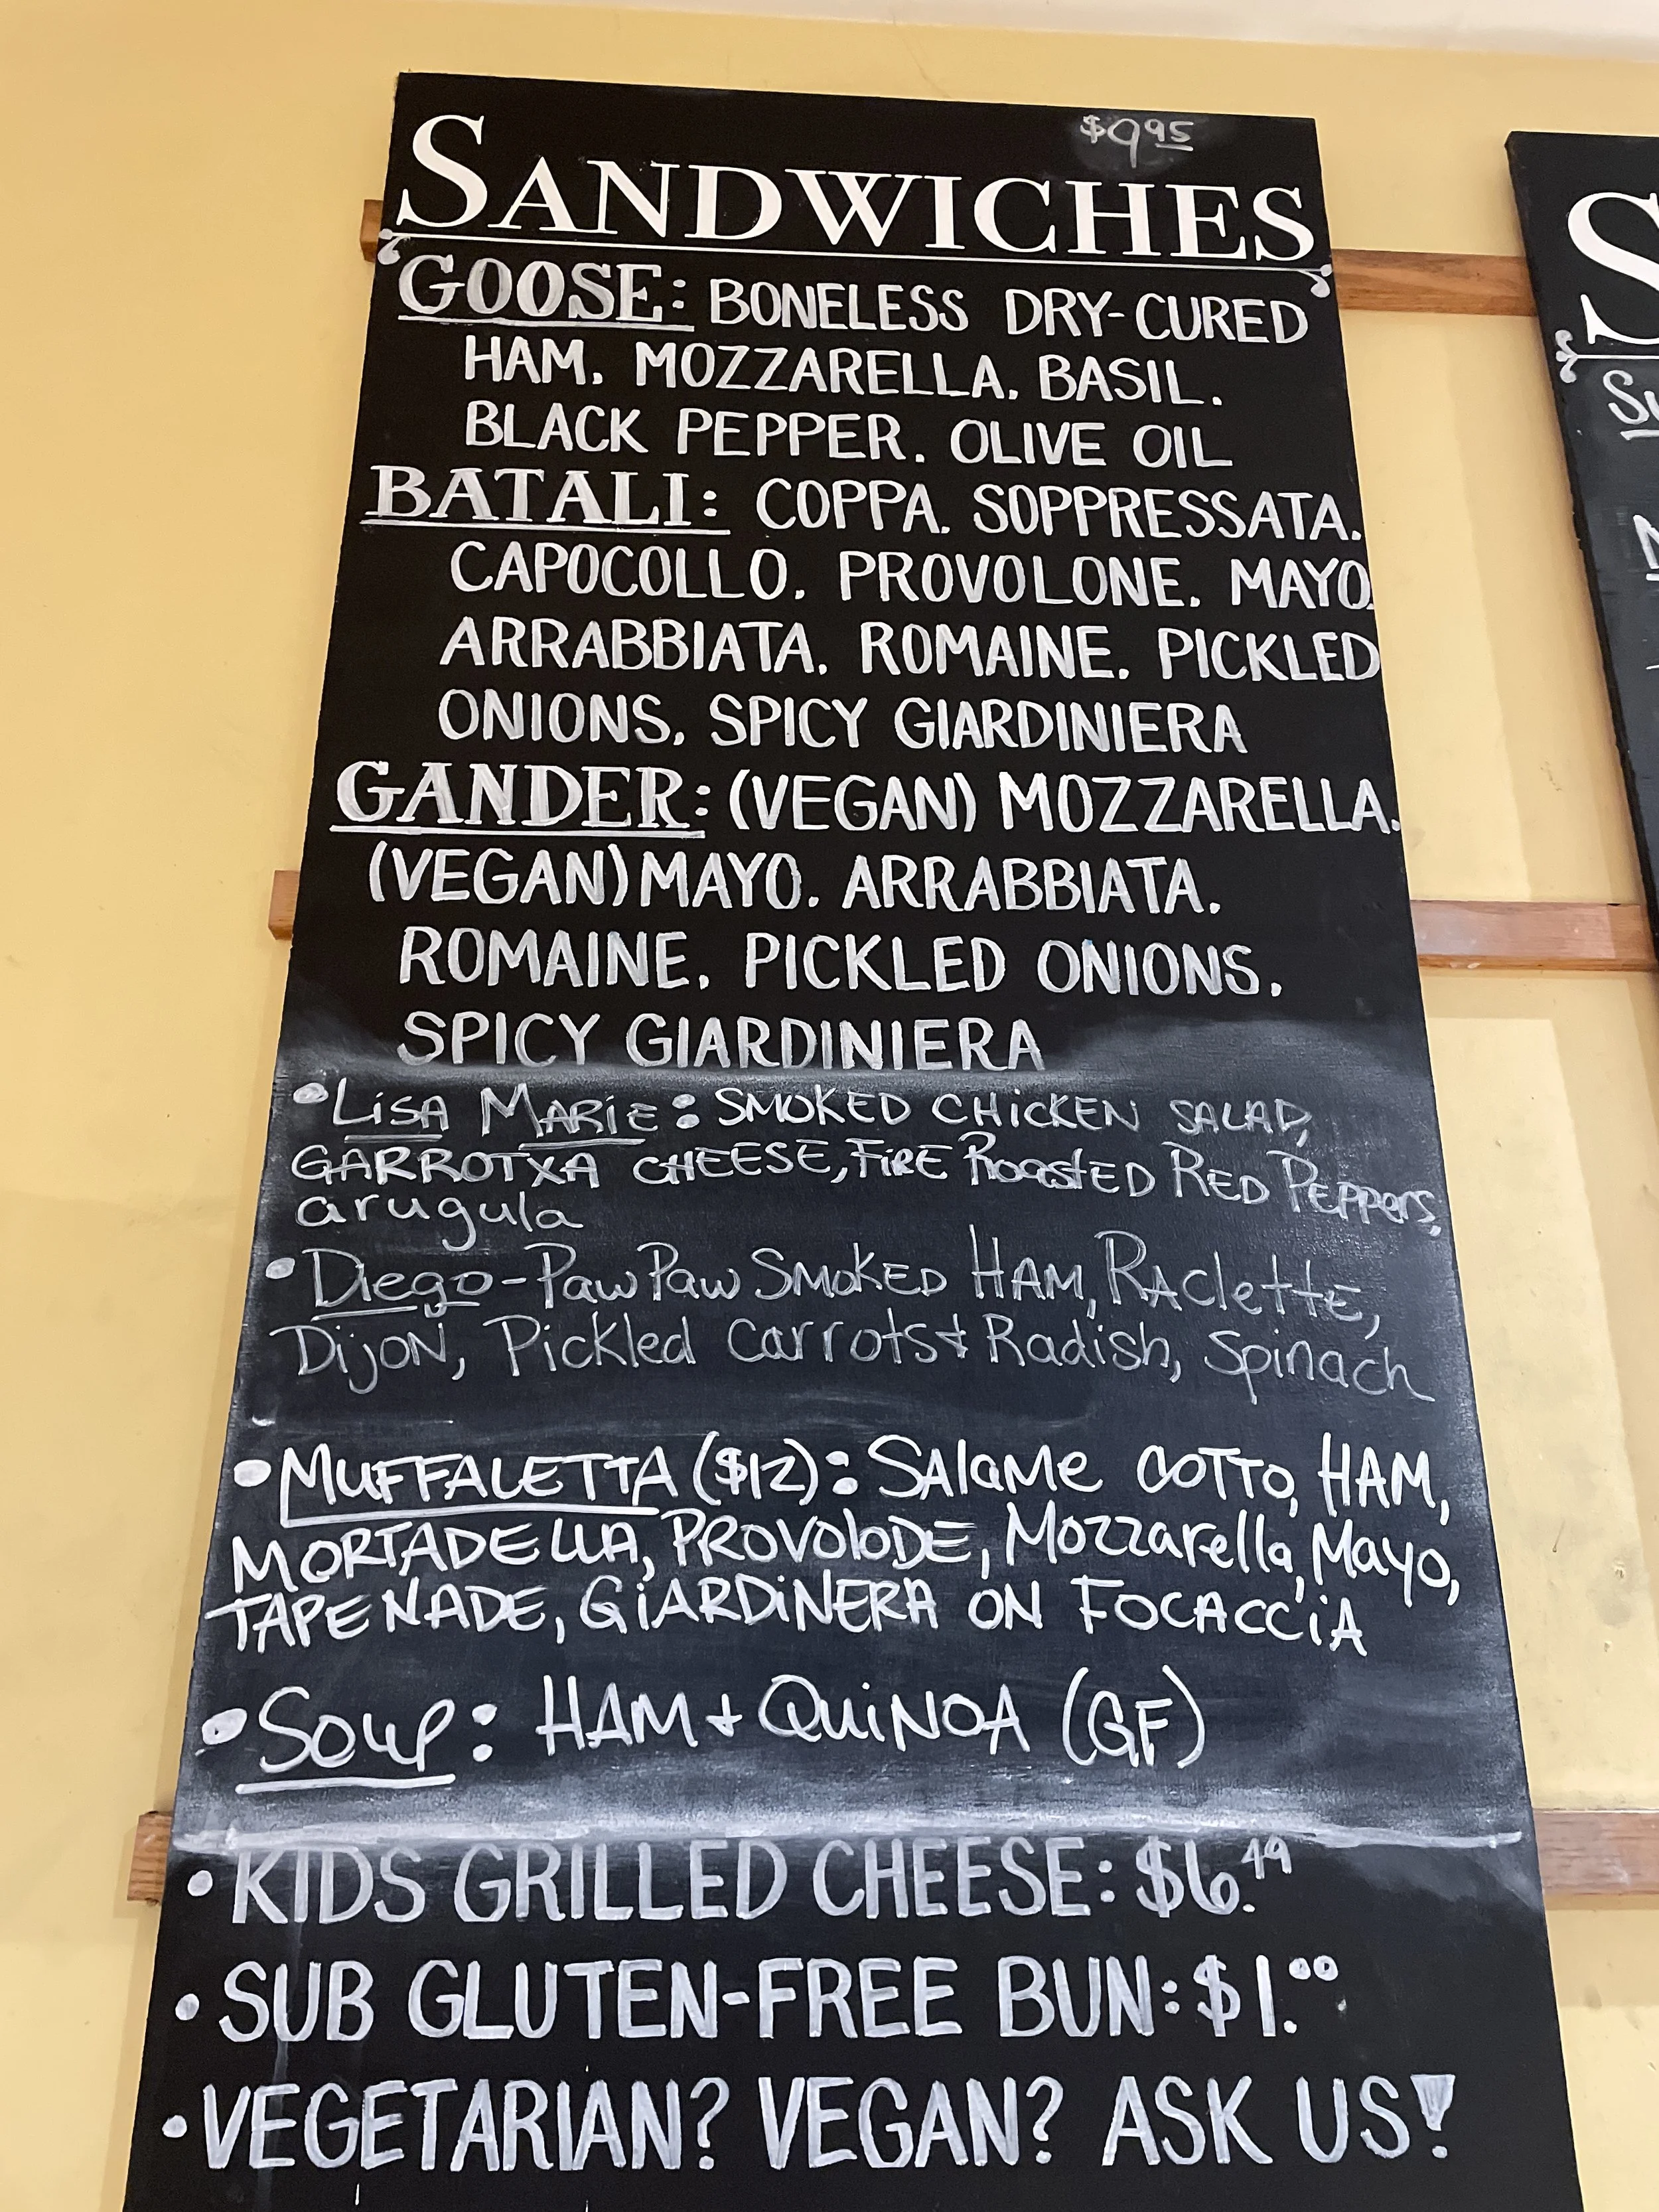 $9.95
SANDWICHES
GOOSE: BONELESS DRY-CURED
HAM. MOZZARELLA. BASIL.
BLACK PEPPER. OLIVE OIL
BATALI: COPPA. SOPPRESSATA.
CAPOCOLLO. PROVOLONE. MAYO.
ARRABBIATA. ROMAINE. PICKLED
ONIONS. SPICY GIARDINIERA
GANDER: (VEGAN) MOZZARELLA.
(VEGAN) MAYO. ARRABBIATA.
ROMAINE. PICKLED ONIONS.
SPICY GIARDINIERA
• LiSA MARiE: SMOKED CHiCKEN SALAD,
GARROTXA CHEESE, FiRE RoastED RED PEPPers,
arugula
• Diego - PawPaw SMoKED HAM, RAclettE,
DijoN, Pickled carrots & Radish, Spinach
• MUFFALETTA ($12): SAlaMe COTTO, HAM,
MORTADELLA, PROVOloDE, Mozzarella, Mayo,
TAPENADE, GiARDiNERA ON FOCACCiA
• Soup: HAM + QuiNOA (GF)
• KIDS GRILLED CHEESE: $6.49
• SUB GLUTEN-FREE BUN: $1.00
• VEGETARIAN? VEGAN? ASK US!
S